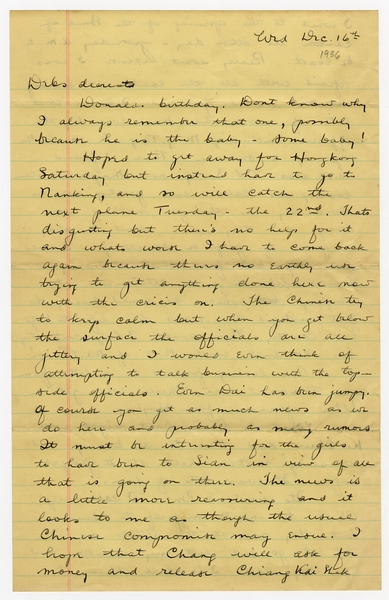 Wed Dec. 16th
1936
Debs dearest
Donald's birthday. Dont know why
I always remember that one, possibly
because he is the baby - some baby!
Hoped to get away for Hongkong
Saturday but instead have to go to
Nanking, and so will catch the
next plane Tuesday - the 22nd. Thats
disgusting but there's no help for it
and whats worse I have to come back
again because theres no earthly use
trying to get anything done here now
with the crisis on. The Chinese try
to keep calm but when you get below
the surface the officials are all
jittery and I would even think of
attempting to talk business with the top-
side officials. Even Dai has been jumpy.
Of course you get as much news as we
do here and probably as many rumors
It must be interesting for the girls
to have been to Sian in view of all
that is going on there. The news is
a little more reassuring and it
looks to me as though the usual
Chinese compromise may ensue. I
hope that Chang will ask for
money and release Chiang Kai Shek